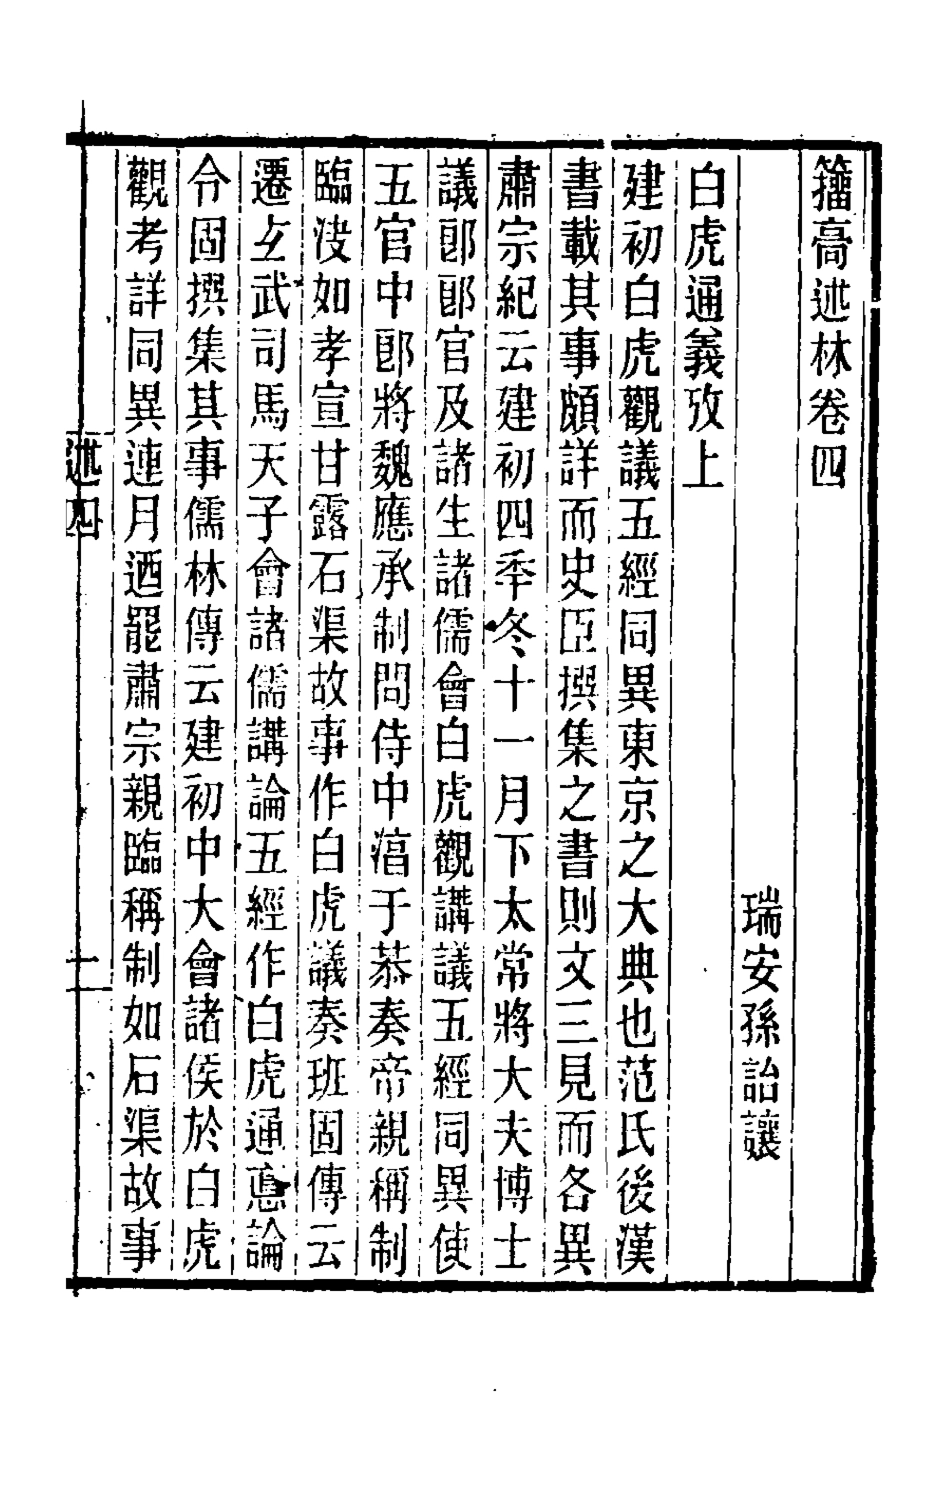 籒高述林卷四
瑞安孫詒讓
白虎通義攷上
建初白虎觀議五經同異東京之大典也范氏後漢
書載其事頗詳而史臣撰集之書則文三見而各異
肅宗紀云建初四季冬十一月下太常將大夫博士
議郎郎官及諸生諸儒會白虎觀講議五經同異使
五官中郎將魏應承制問侍中湻于恭奏帝親稱制
臨決如孝宣甘露石渠故事作白虎議奏班固傳云
遷玄武司馬天子會諸儒講論五經作白虎通悳論
令固撰集其事儒林傳云建初中大會諸侯於白虎
觀考詳同異連月迺罷肅宗親臨稱制如石渠故事
述四
一